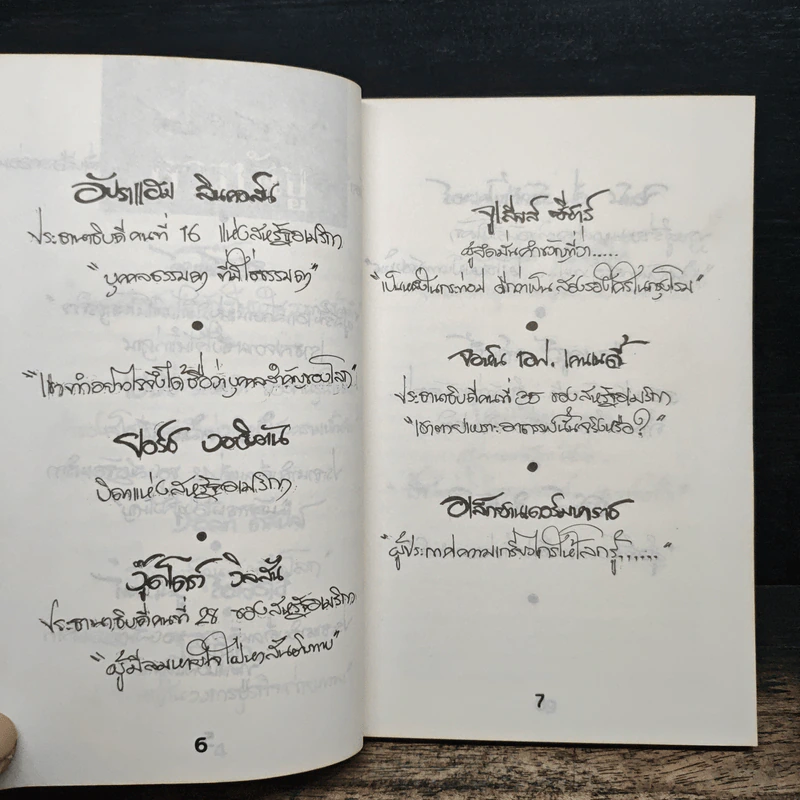 อับราแฮม ลินคอล์น
ประธานาธิบดีคนที่ 16 แห่งสหรัฐอเมริกา
"บุคคลธรรมดา ที่มิใช่ธรรมดา"
"เขาทำอย่างไรจึงได้ชื่อว่าบุคคลสำคัญของโลก"
ยอร์ช วอชิงตัน
บิดาแห่งสหรัฐอเมริกา
วู๊ดโดรว์ วิลสัน
ประธานาธิบดีคนที่ 28 ของสหรัฐอเมริกา
"ผู้มีลมหายใจใฝ่หาสันติภาพ"
6
จูเลียส ซีซาร์
ผู้ยึดมั่นคำขวัญที่ว่า.....
"เป็นหนึ่งในกระท่อม ดีกว่าเป็น สองรองใครในกรุงโรม"
จอห์น เอฟ. เคนเนดี้
ประธานาธิบดีคนที่ 35 ของสหรัฐอเมริกา
"เขาตายเพราะอาถรรพ์นั้นจริงหรือ?"
อเล็กซานเดอร์มหาราช
"ผู้ประกาศความเกรียงไกรให้โลกรู้......"
7